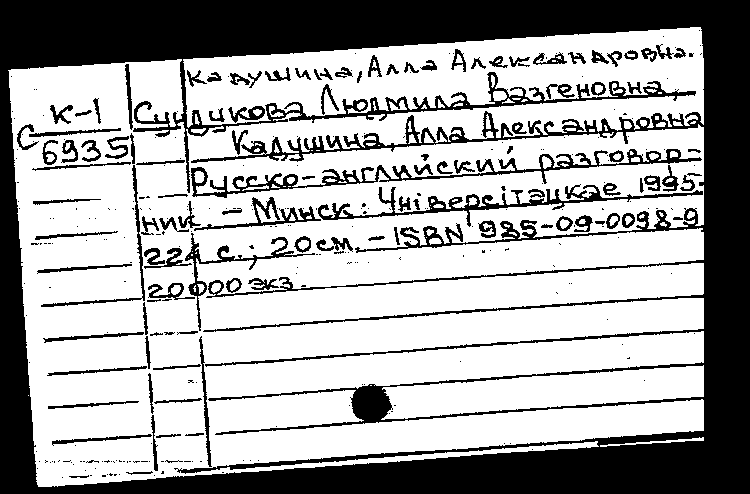 Кадушина, Алла Александровна.
К-1 Сундукова, Людмила Вазгеновна,
С Кадушина, Алла Александровна
6935
Русско-английский разговор-
ник. - Минск: Унiверсiтэцкае, 1995-
224 с.; 20 см. - ISBN 985-09-0098-9,
20000 экз.